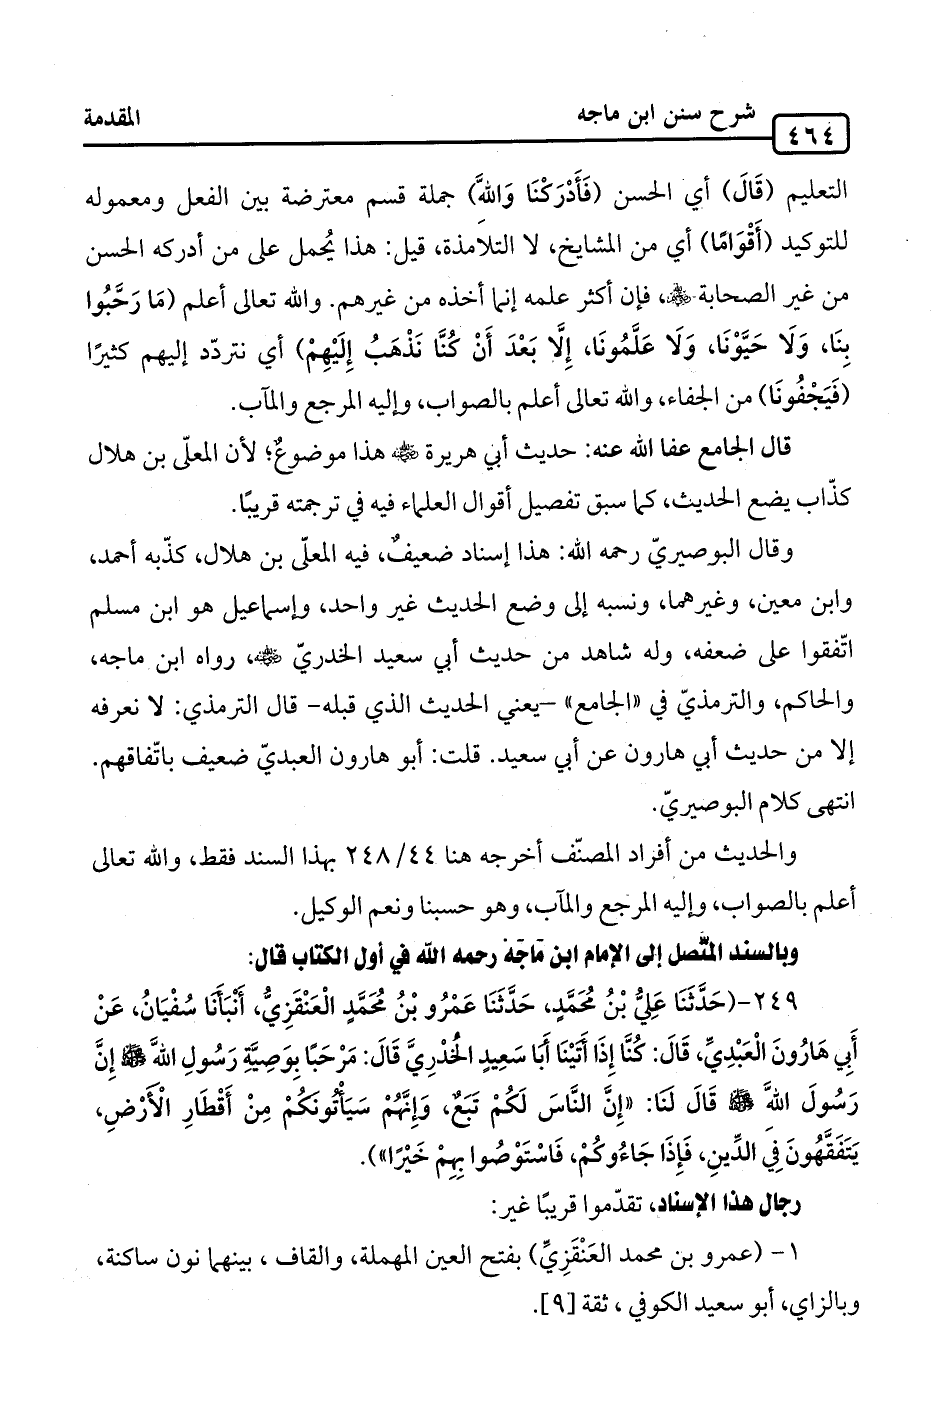 ٤٦٤ شرح سنن ابن ماجه المقدمة
التعليم (قَالَ) أي الحسن (فَأَدْرَكْنَا وَاللهَِّ) جملة قسم معترضة بين الفعل ومعموله
للتوكيد (أَقْوَامًا) أي من المشايخ، لا التلامذة، قيل: هذا يُحمل على من أدركه الحسن
من غير الصحابة ﷺ، فإن أكثر علمه إنما أخذه من غيرهم. والله تعالى أعلم (مَا رَحَّبُوا
بِنَا، وَلَا حَيَّوْنَا، وَلَا عَلَّمُونَا، إِلَّا بَعْدَ أَنْ كُنَّا نَذْهَبُ إِلَيْهِمْ) أي نتردّد إليهم كثيرًا
(فَيَجْفُونَا) من الجفاء، والله تعالى أعلم بالصواب، وإليه المرجع والمآب.
قال الجامع عفا الله عنه: حديث أبي هريرة ﷺ هذا موضوعٌ؛ لأن المعلّى بن هلال
كذّاب يضع الحديث، كما سبق تفصيل أقوال العلماء فيه في ترجمته قريبًا.
وقال البوصيريّ رحمه الله: هذا إسناد ضعيفٌ، فيه المعلّى بن هلال، كذّبه أحمد،
وابن معين، وغيرهما، ونسبه إلى وضع الحديث غير واحد، وإسماعيل هو ابن مسلم
اتّفقوا على ضعفه، وله شاهد من حديث أبي سعيد الخدريّ ﷺ، رواه ابن ماجه،
والحاكم، والترمذيّ في «الجامع» -يعني الحديث الذي قبله- قال الترمذي: لا نعرفه
إلا من حديث أبي هارون عن أبي سعيد. قلت: أبو هارون العبديّ ضعيف باتّفاقهم.
انتهى كلام البوصيريّ.
والحديث من أفراد المصنّف أخرجه هنا ٢٤٨/٤٤ بهذا السند فقط، والله تعالى
أعلم بالصواب، وإليه المرجع والمآب، وهو حسبنا ونعم الوكيل.
وبالسند المتّصل إلى الإمام ابن مَاجَهْ رحمه الله في أول الكتاب قال:
٢٤٩-(حَدَّثَنَا عَلِيُّ بْنُ مُحَمَّدٍ، حَدَّثَنَا عَمْرُو بْنُ مُحَمَّدٍ الْعَنْقَزِيُّ، أَنْبَأَنَا سُفْيَانُ، عَنْ
أَبِي هَارُونَ الْعَبْدِيِّ، قَالَ: كُنَّا إِذَا أَتَيْنَا أَبَا سَعِيدٍ الْخُدْرِيَّ قَالَ: مَرْحَبًا بِوَصِيَّةِ رَسُولِ اللهَِّ ﷺ إِنَّ
رَسُولَ اللهَِّ ﷺ قَالَ لَنَا: «إِنَّ النَّاسَ لَكُمْ تَبَعٌ، وَإِنَّهُمْ سَيَأْتُونَكُمْ مِنْ أَقْطَارِ الْأَرْضِ،
يَتَفَقَّهُونَ فِي الدِّينِ، فَإِذَا جَاءُوكُمْ، فَاسْتَوْصُوا بِهِمْ خَيْرًا»).
رجال هذا الإسناد، تقدّموا قريبًا غير:
١- (عمرو بن محمد العَنْقَزِيِّ) بفتح العين المهملة، والقاف ، بينهما نون ساكنة،
وبالزاي، أبو سعيد الكوفي ، ثقة [٩].